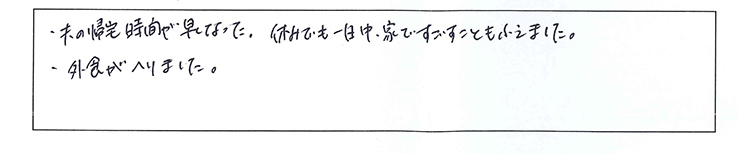 ・夫の帰宅時間が早くなった。休みでも一日中、家ですごすこともふえました。
・外食がへりました。